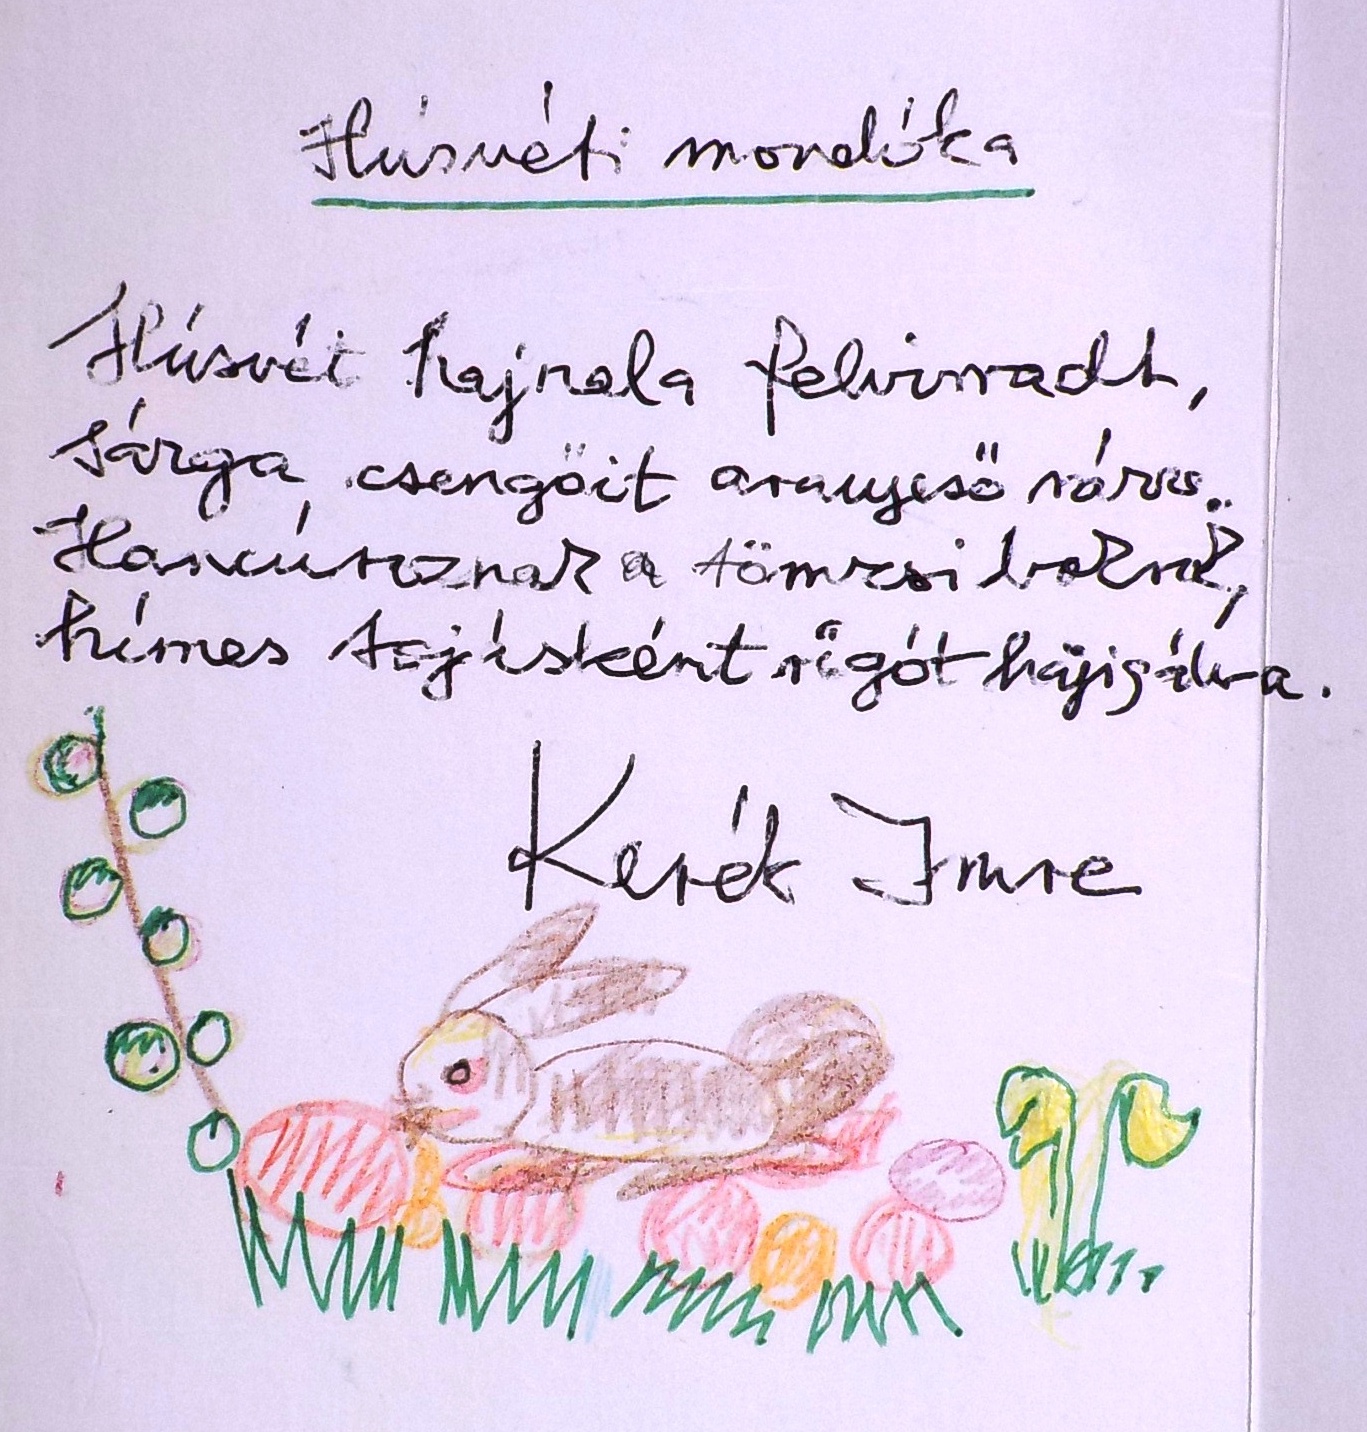 Húsvéti mondóka
Húsvét hajnala felvirradt,
sárga csengőit aranyeső rázza.
Hancúroznak a tömzsi bokrok,
hímes tojásként rigót hajigálva.
Kerék Imre